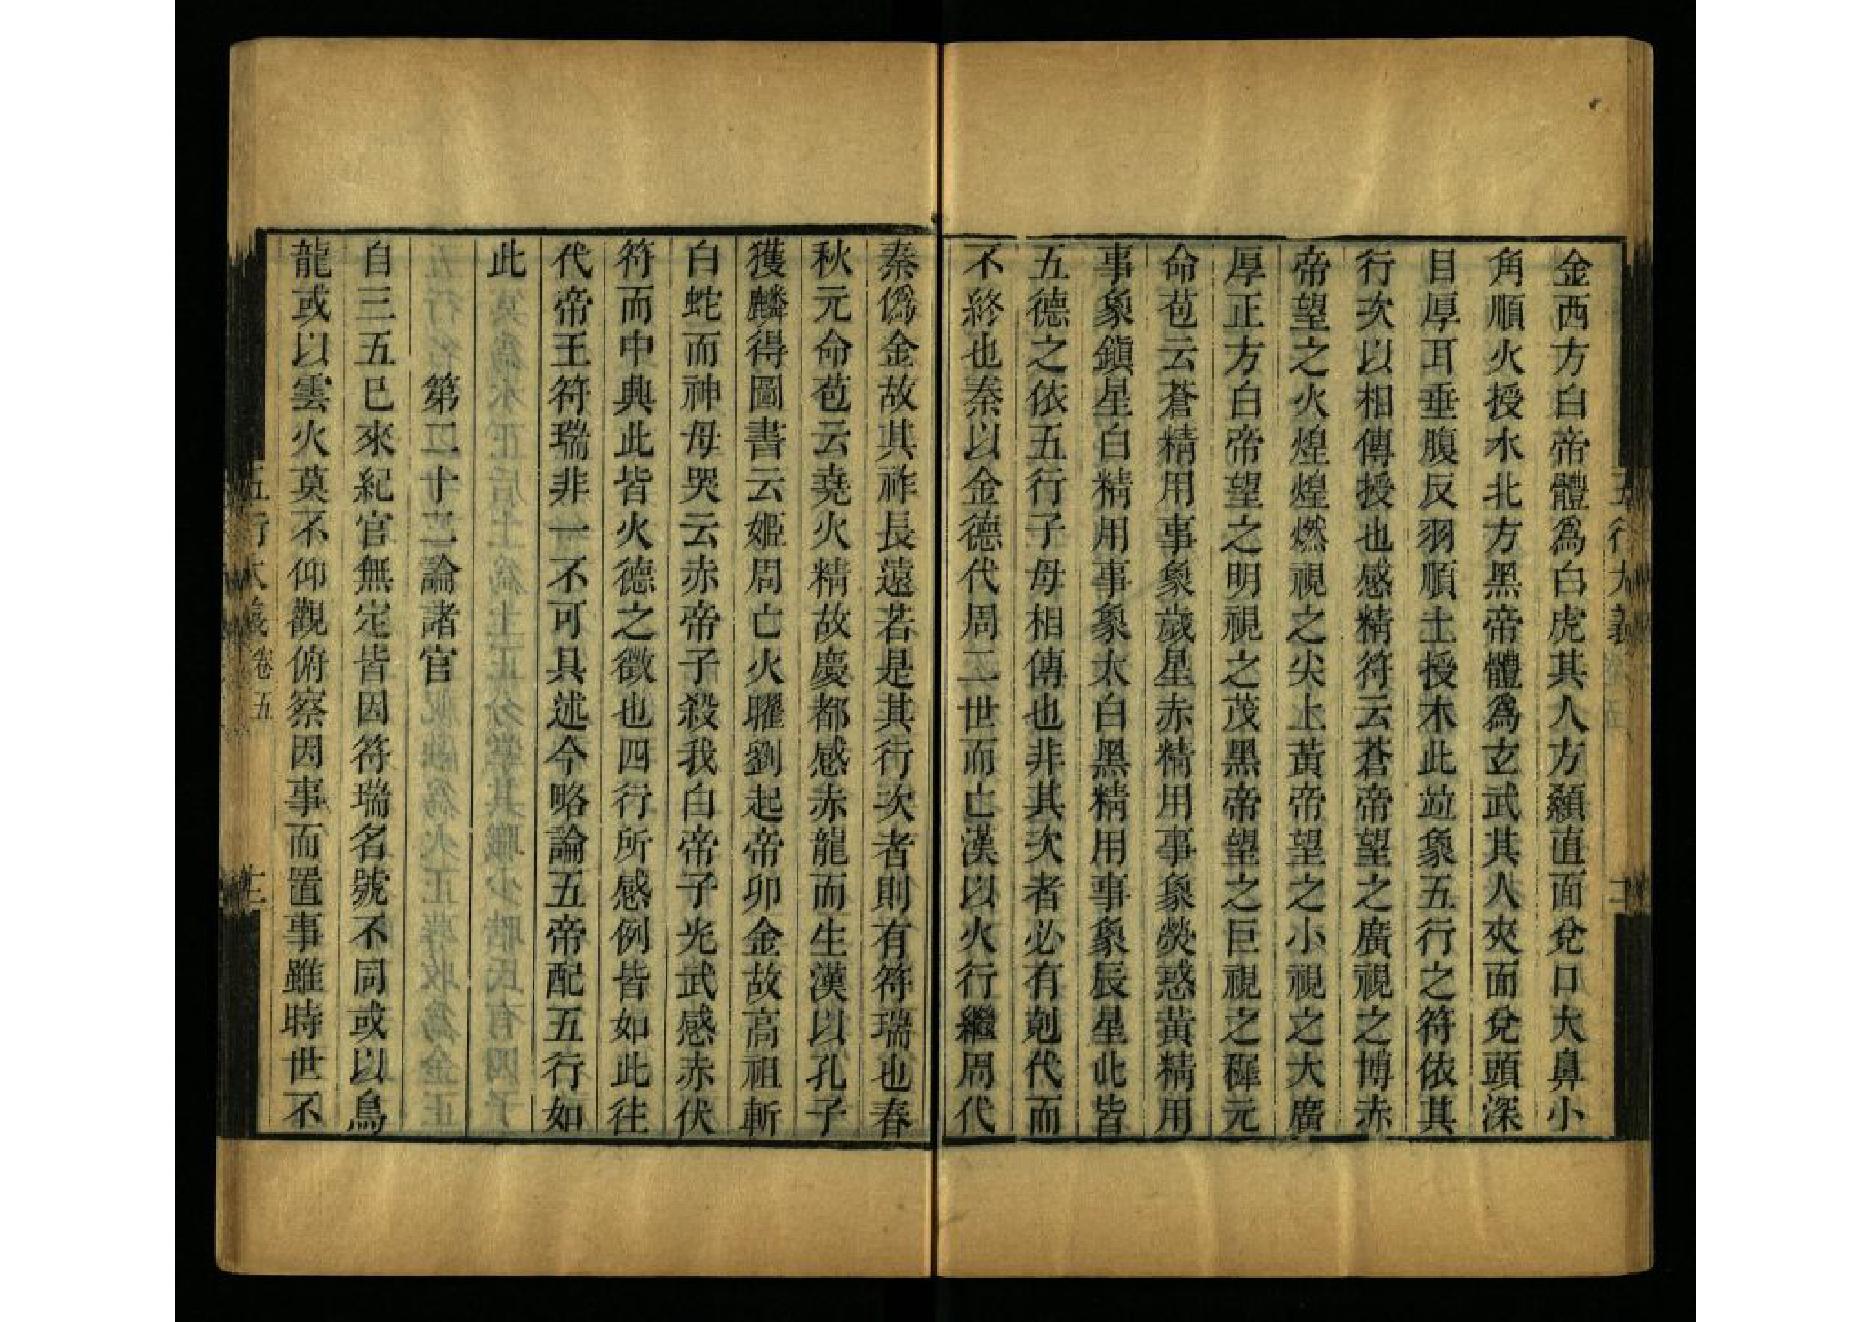 金西方白帝體爲白虎其人方顙直面兌口大鼻小
角順火授水北方黑帝體爲玄武其人夾面兌頭深
目厚耳垂腹反羽順土授木此竝象五行之符依其
行次以相傳授也感精符云蒼帝望之廣視之博赤
帝望之火煌煌燃視之尖上黃帝望之小視之大廣
厚正方白帝望之明視之茂黑帝望之巨視之稺元
命苞云蒼精用事象歲星赤精用事象熒惑黃精用
事象鎭星白精用事象太白黑精用事象辰星此皆
五德之依五行子母相傳也非其次者必有剋代而
不終也秦以金德代周二世而亡漢以火行繼周代
秦僞金故其祚長遠若是其行次者則有符瑞也春
秋元命苞云堯火精故慶都感赤龍而生漢以孔子
獲麟得圖書云姬周亡火曜劉起帝卯金故高祖斬
白蛇而神母哭云赤帝子殺我白帝子光武感赤伏
符而中典此皆火德之徵也四行所感例皆如此往
代帝王符瑞非一不可具述今略論五帝配五行如
此
第二十二論諸官
自三五已來紀官無定皆因符瑞名號不同或以鳥
龍或以雲火莫不仰觀俯察因事而置事雖時世不
五行大義卷五